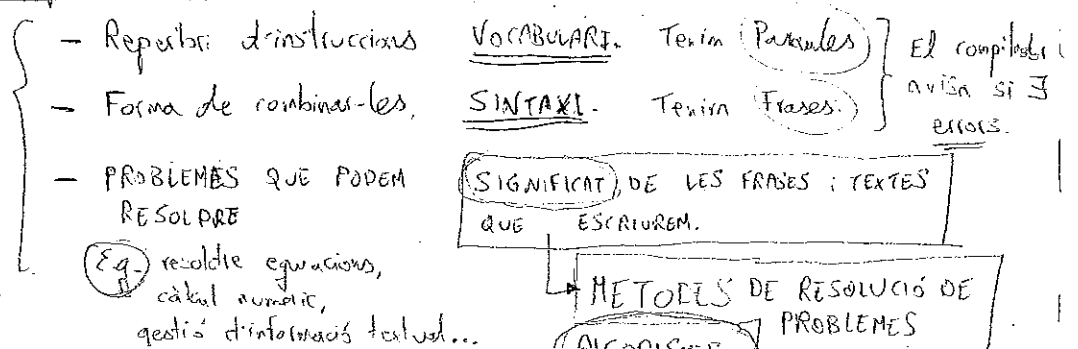 - Repertori d'instruccions VOCABULARI. Tenim Paraules
- Forma de combinar-les, SINTAXI. Tenim Frases.
El compilador
avisa si ∃
errors.
- PROBLEMES QUE PODEM
RESOLDRE
SIGNIFICAT, DE LES FRASES i TEXTES
QUE ESCRIUREM.
E.g. resoldre equacions,
càlcul numèric,
gestió d'informació textual...
METODES DE RESOLUCIÓ DE
PROBLEMES